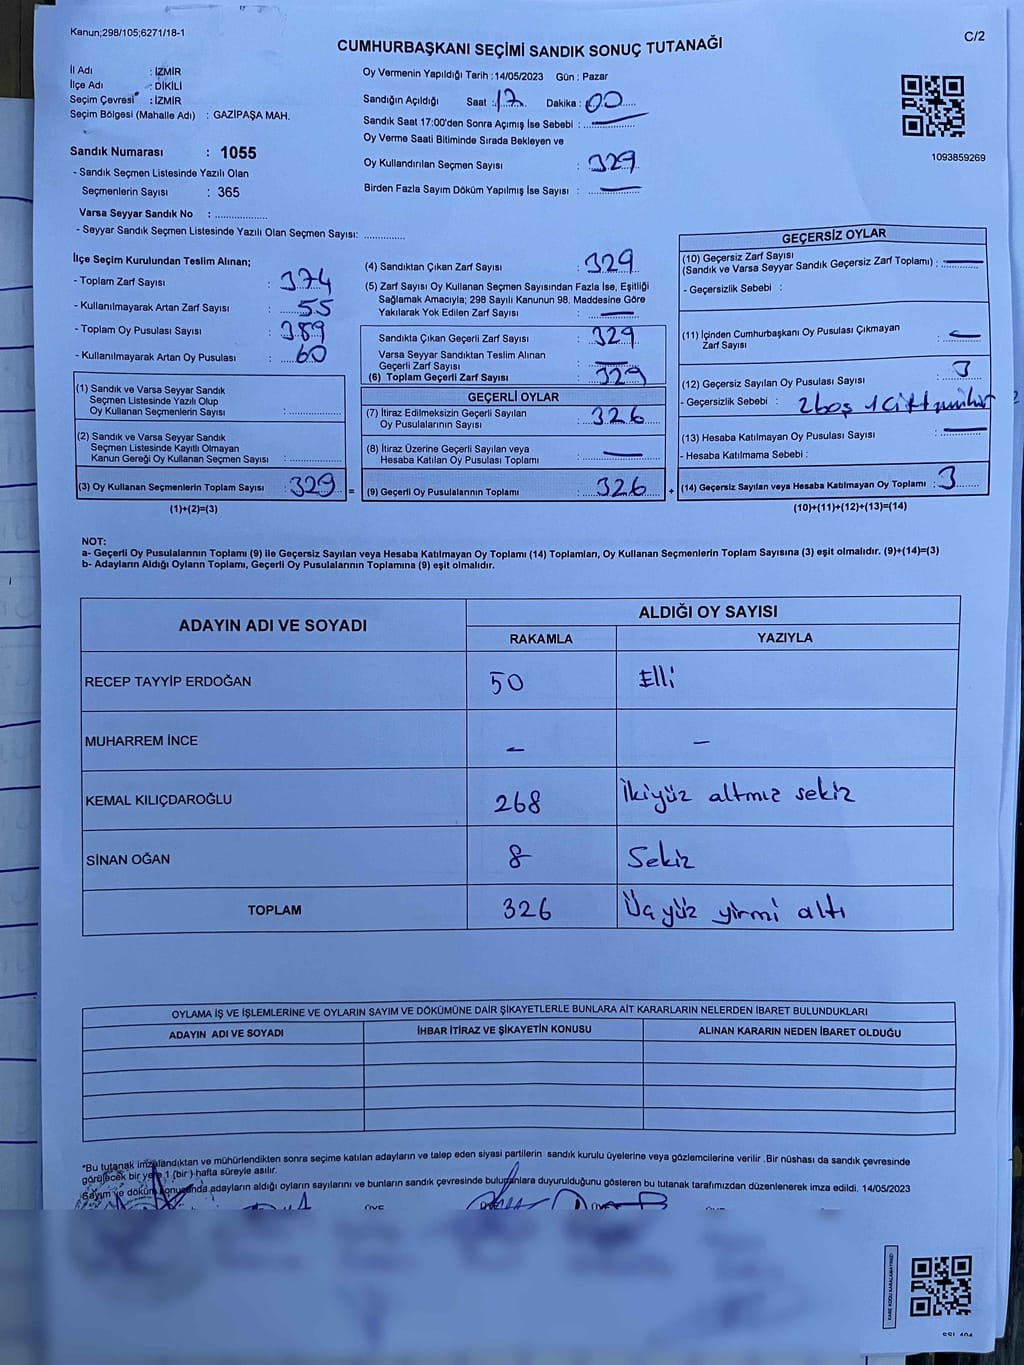 Kanun;298/105;6271/18-1
C/2
CUMHURBAŞKANI SEÇİMİ SANDIK SONUÇ TUTANAĞI
İl Adı : İZMİR
İlçe Adı : DİKİLİ
Seçim Çevresi : İZMİR
Seçim Bölgesi (Mahalle Adı) : GAZİPAŞA MAH.
Sandık Numarası : 1055
- Sandık Seçmen Listesinde Yazılı Olan
Seçmenlerin Sayısı : 365
Varsa Seyyar Sandık No : ..................
- Seyyar Sandık Seçmen Listesinde Yazılı Olan Seçmen Sayısı: ..............
Oy Vermenin Yapıldığı Tarih : 14/05/2023 Gün : Pazar
Sandığın Açıldığı Saat : 17 Dakika : 00
Sandık Saat 17:00'den Sonra Açımış İse Sebebi : —
Oy Verme Saati Bitiminde Sırada Bekleyen ve
Oy Kullandırılan Seçmen Sayısı : 329
Birden Fazla Sayım Döküm Yapılmış İse Sayısı : —
1093859269
İlçe Seçim Kurulundan Teslim Alınan;
- Toplam Zarf Sayısı : 374
- Kullanılmayarak Artan Zarf Sayısı : 55
- Toplam Oy Pusulası Sayısı : 389
- Kullanılmayarak Artan Oy Pusulası : 60
(1) Sandık ve Varsa Seyyar Sandık
Seçmen Listesinde Yazılı Olup
Oy Kullanan Seçmenlerin Sayısı : ..............
(2) Sandık ve Varsa Seyyar Sandık
Seçmen Listesinde Kayıtlı Olmayan
Kanun Gereği Oy Kullanan Seçmen Sayısı : ..............
(3) Oy Kullanan Seçmenlerin Toplam Sayısı : 329 =
(1)+(2)=(3)
(4) Sandıktan Çıkan Zarf Sayısı : 329
(5) Zarf Sayısı Oy Kullanan Seçmen Sayısından Fazla İse, Eşitliği
Sağlamak Amacıyla; 298 Sayılı Kanunun 98. Maddesine Göre
Yakılarak Yok Edilen Zarf Sayısı : —
Sandıkta Çıkan Geçerli Zarf Sayısı : 329
Varsa Seyyar Sandıktan Teslim Alınan
Geçerli Zarf Sayısı : —
(6) Toplam Geçerli Zarf Sayısı : 329
GEÇERLİ OYLAR
(7) İtiraz Edilmeksizin Geçerli Sayılan
Oy Pusulalarının Sayısı : 326
(8) İtiraz Üzerine Geçerli Sayılan veya
Hesaba Katılan Oy Pusulası Toplamı : —
(9) Geçerli Oy Pusulalarının Toplamı : 326 +
GEÇERSİZ OYLAR
(10) Geçersiz Zarf Sayısı
(Sandık ve Varsa Seyyar Sandık Geçersiz Zarf Toplamı) : —
- Geçersizlik Sebebi :
(11) İçinden Cumhurbaşkanı Oy Pusulası Çıkmayan
Zarf Sayısı : —
(12) Geçersiz Sayılan Oy Pusulası Sayısı : 3
- Geçersizlik Sebebi : 2 boş 1 Çift
(13) Hesaba Katılmayan Oy Pusulası Sayısı : —
- Hesaba Katılmama Sebebi :
(14) Geçersiz Sayılan veya Hesaba Katılmayan Oy Toplamı : 3
(10)+(11)+(12)+(13)=(14)
NOT:
a- Geçerli Oy Pusulalarının Toplamı (9) ile Geçersiz Sayılan veya Hesaba Katılmayan Oy Toplamı (14) Toplamları, Oy Kullanan Seçmenlerin Toplam Sayısına (3) eşit olmalıdır. (9)+(14)=(3)
b- Adayların Aldığı Oyların Toplamı, Geçerli Oy Pusulalarının Toplamına (9) eşit olmalıdır.
ADAYIN ADI VE SOYADI
ALDIĞI OY SAYISI
RAKAMLA YAZIYLA
RECEP TAYYİP ERDOĞAN 50 Elli
MUHARREM İNCE – –
KEMAL KILIÇDAROĞLU 268 İkiyüz altmız sekiz
SİNAN OĞAN 8 Sekiz
TOPLAM 326 Üçyüz yirmi altı
OYLAMA İŞ VE İŞLEMLERİNE VE OYLARIN SAYIM VE DÖKÜMÜNE DAİR ŞİKAYETLERLE BUNLARA AİT KARARLARIN NELERDEN İBARET BULUNDUKLARI
ADAYIN ADI VE SOYADI İHBAR İTİRAZ VE ŞİKAYETİN KONUSU ALINAN KARARIN NEDEN İBARET OLDUĞU
*Bu tutanak imzalandıktan ve mühürlendikten sonra seçime katılan adayların ve talep eden siyasi partilerin sandık kurulu üyelerine veya gözlemcilerine verilir .Bir nüshası da sandık çevresinde
görelecek bir yere 1 (bir ) hafta süreyle asılır.
Sayım ve döküm sonucunda adayların aldığı oyların sayılarını ve bunların sandık çevresinde bulunanlara duyurulduğunu gösteren bu tutanak tarafımızdan düzenlenerek imza edildi. 14/05/2023